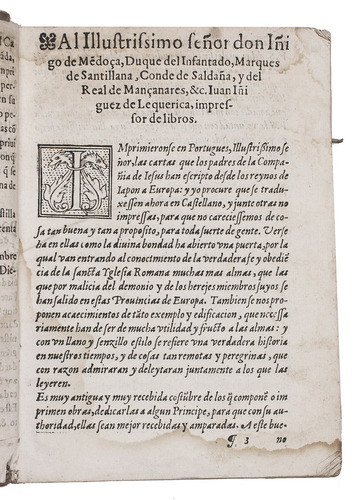 Al Illustrissimo señor don Iñi
go de Mẽdoça, Duque del Infantado, Marques
de Santillana, Conde de Saldaña, y del
Real de Mançanares, &c. Iuan Iñi
guez de Lequerica, impres-
sor de libros.
IMprimieronse en Portugues, Illustrissimo se
ñor, las cartas que los padres de la Compa-
ñia de Iesus han escripto desde los reynos de
Iapon a Europa: y yo procure que se tradu-
xessen ahora en Castellano, y junte otras no
impressas, para que no careciessemos de co-
sa tan buena y tan a proposito, para toda suerte de gente. Verse
ha en ellas como la diuina bondad ha abierto vna puerta, por la
qual van entrando al conocimiento de la verdadera fe y obediẽ
cia de la sancta Yglesia Romana muchas mas almas, que las
que por malicia del demonio y de los herejes miembros suyos se
han salido en estas Prouincias de Europa. Tambien se nos pro-
ponen acaecimientos de tãto exemplo y edificacion, que necessa
riamente han de ser de mucha vtilidad y fructo a las almas: y
con vn llano y senzillo estilo se refiere vna verdadera historia
en nuestros tiempos, y de cosas tan remotas y peregrinas, que
con razon admiraran y deleytaran juntamente a los que las
leyeren.
Es muy antigua y muy recebida costũbre de los q̃ componẽ o im
primen obras, dedicarlas a algun Principe, para que con su au-
thoridad, ellas sean mejor recebidas y amparadas. A este bue-
¶ 3 no